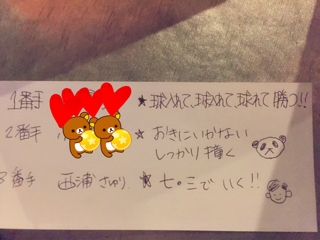 1番手 ★球入れて、球入れて 球入れて 勝つ!!
2番手 ★おきにいかない
しっかり撞く
3番手 西浦さゆり ★七・三でいく!!